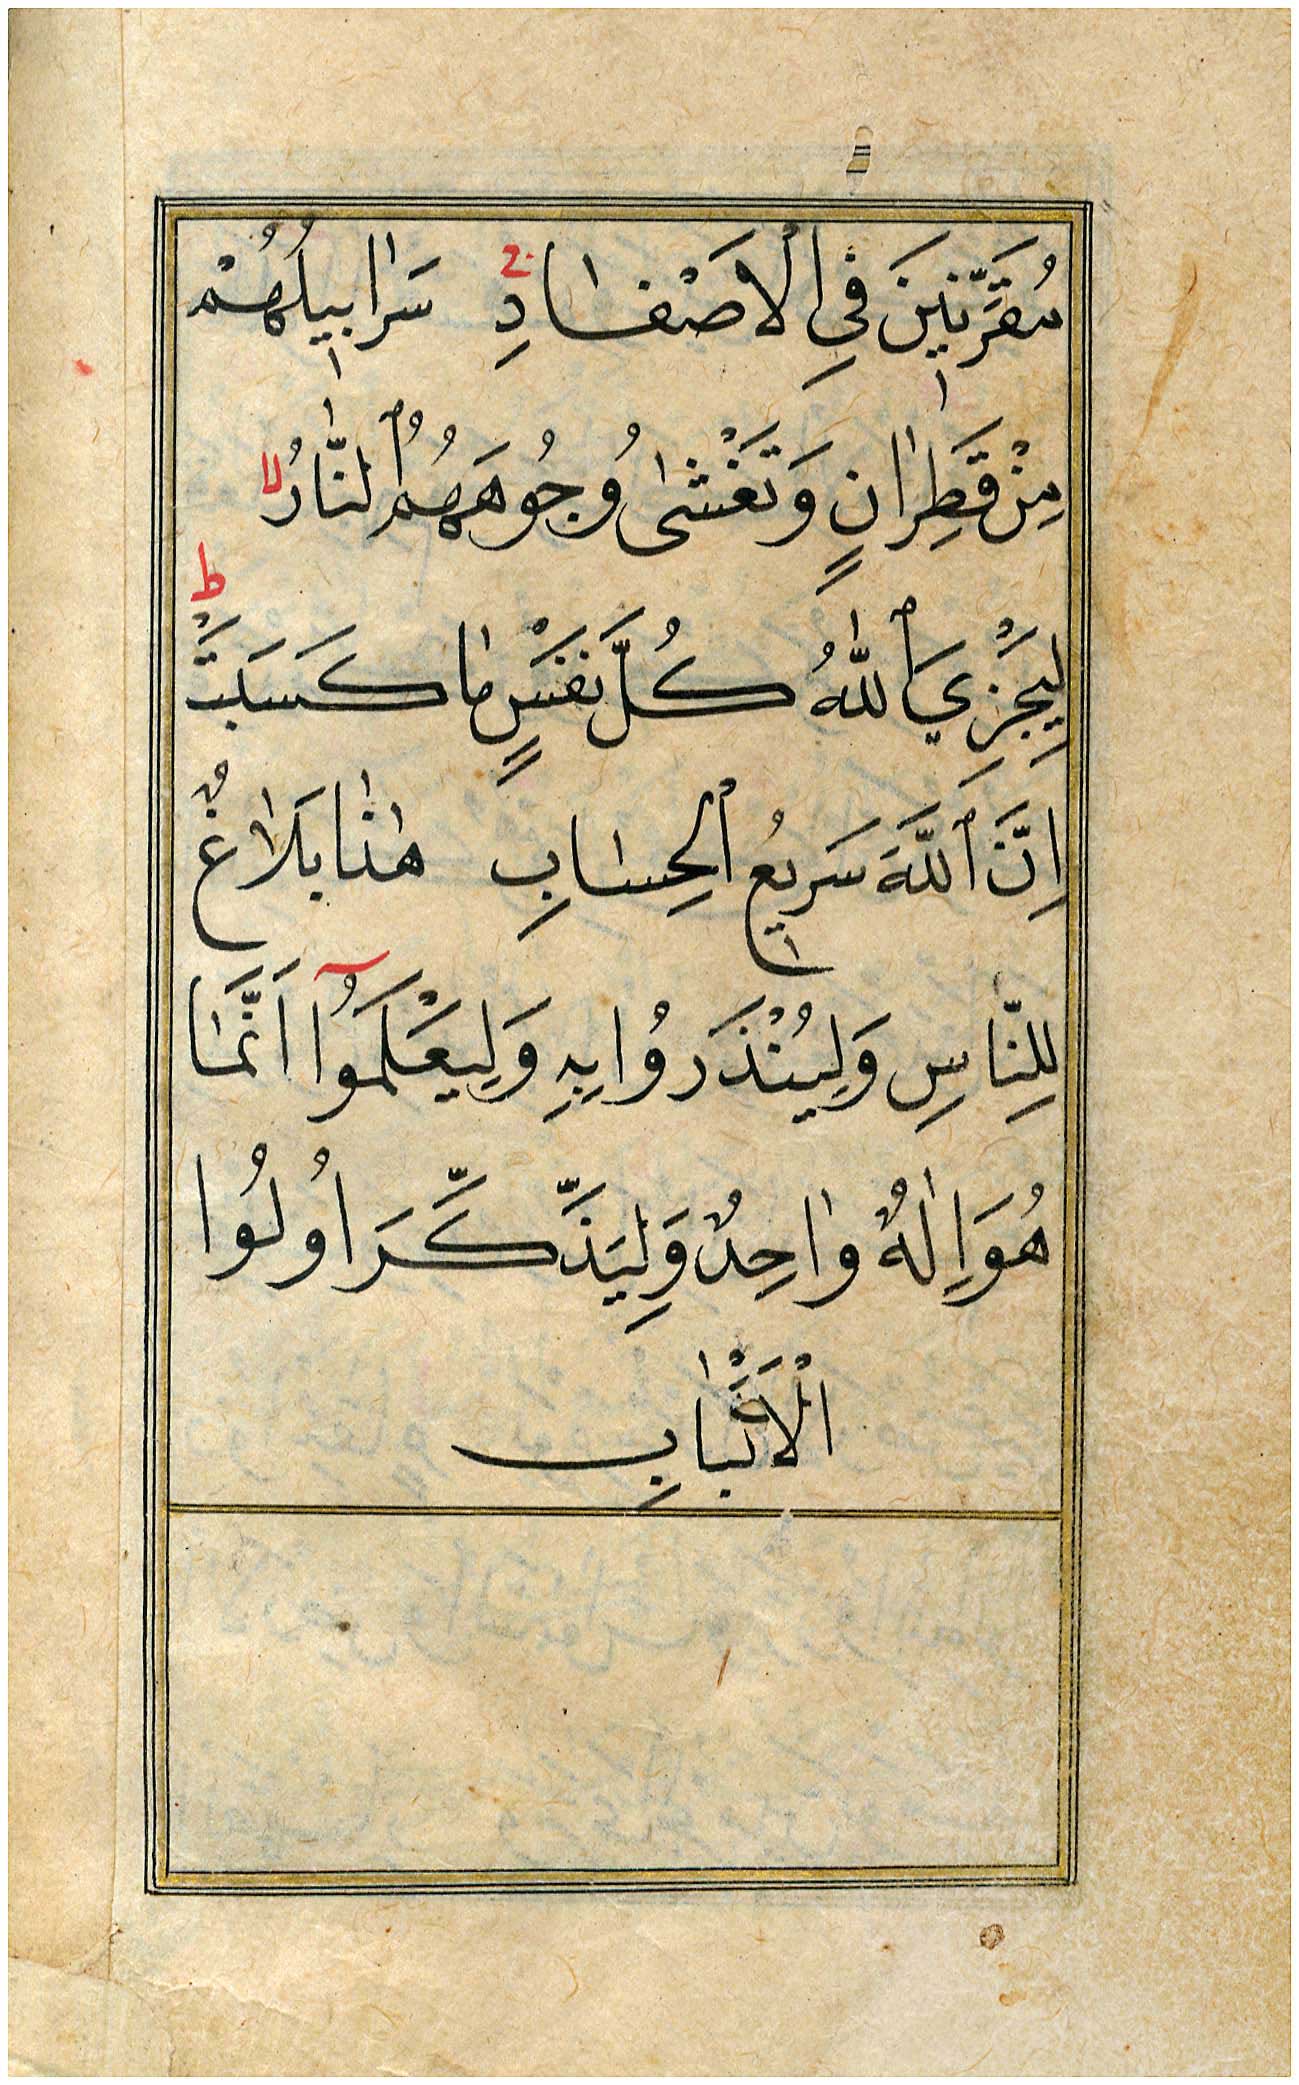 مُقَرَّنِينَ فِي الْاَصْفَادِ ج سَرَابِيلُهُمْ
مِنْ قَطِرَانٍ وَتَغْشٰى وُجُوهَهُمُ ٱلنَّارُ لا
لِيَجْزِيَ ٱللّٰهُ كُلَّ نَفْسٍ مَا كَسَبَتْ ط
اِنَّ ٱللّٰهَ سَرِيعُ ٱلْحِسَابِ هٰذَا بَلَاغٌ
لِلنَّاسِ وَلِيُنْذَرُوا بِهِ وَلِيَعْلَمُوٓا اَنَّمَا
هُوَ اِلٰهٌ وَاحِدٌ وَلِيَذَّكَّرَ اُولُوا
الْاَلْبَابِ